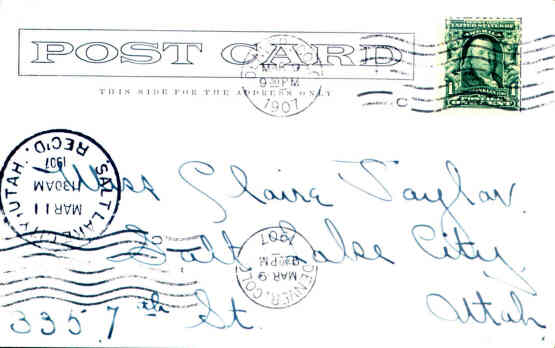 POST CARD
THIS SIDE FOR THE ADDRESS ONLY
MAR 9
9 30 PM
1907
UNITED STATES OF
AMERICA
1 1
SALT LAKE CITY, UTAH. REC'D.
MAR 11
1130 AM
1907
DENVER, COLO.
MAR 9
9 30 PM
1907
Miss Claire Taylor.
Salt Lake City,
335. 7th St. Utah